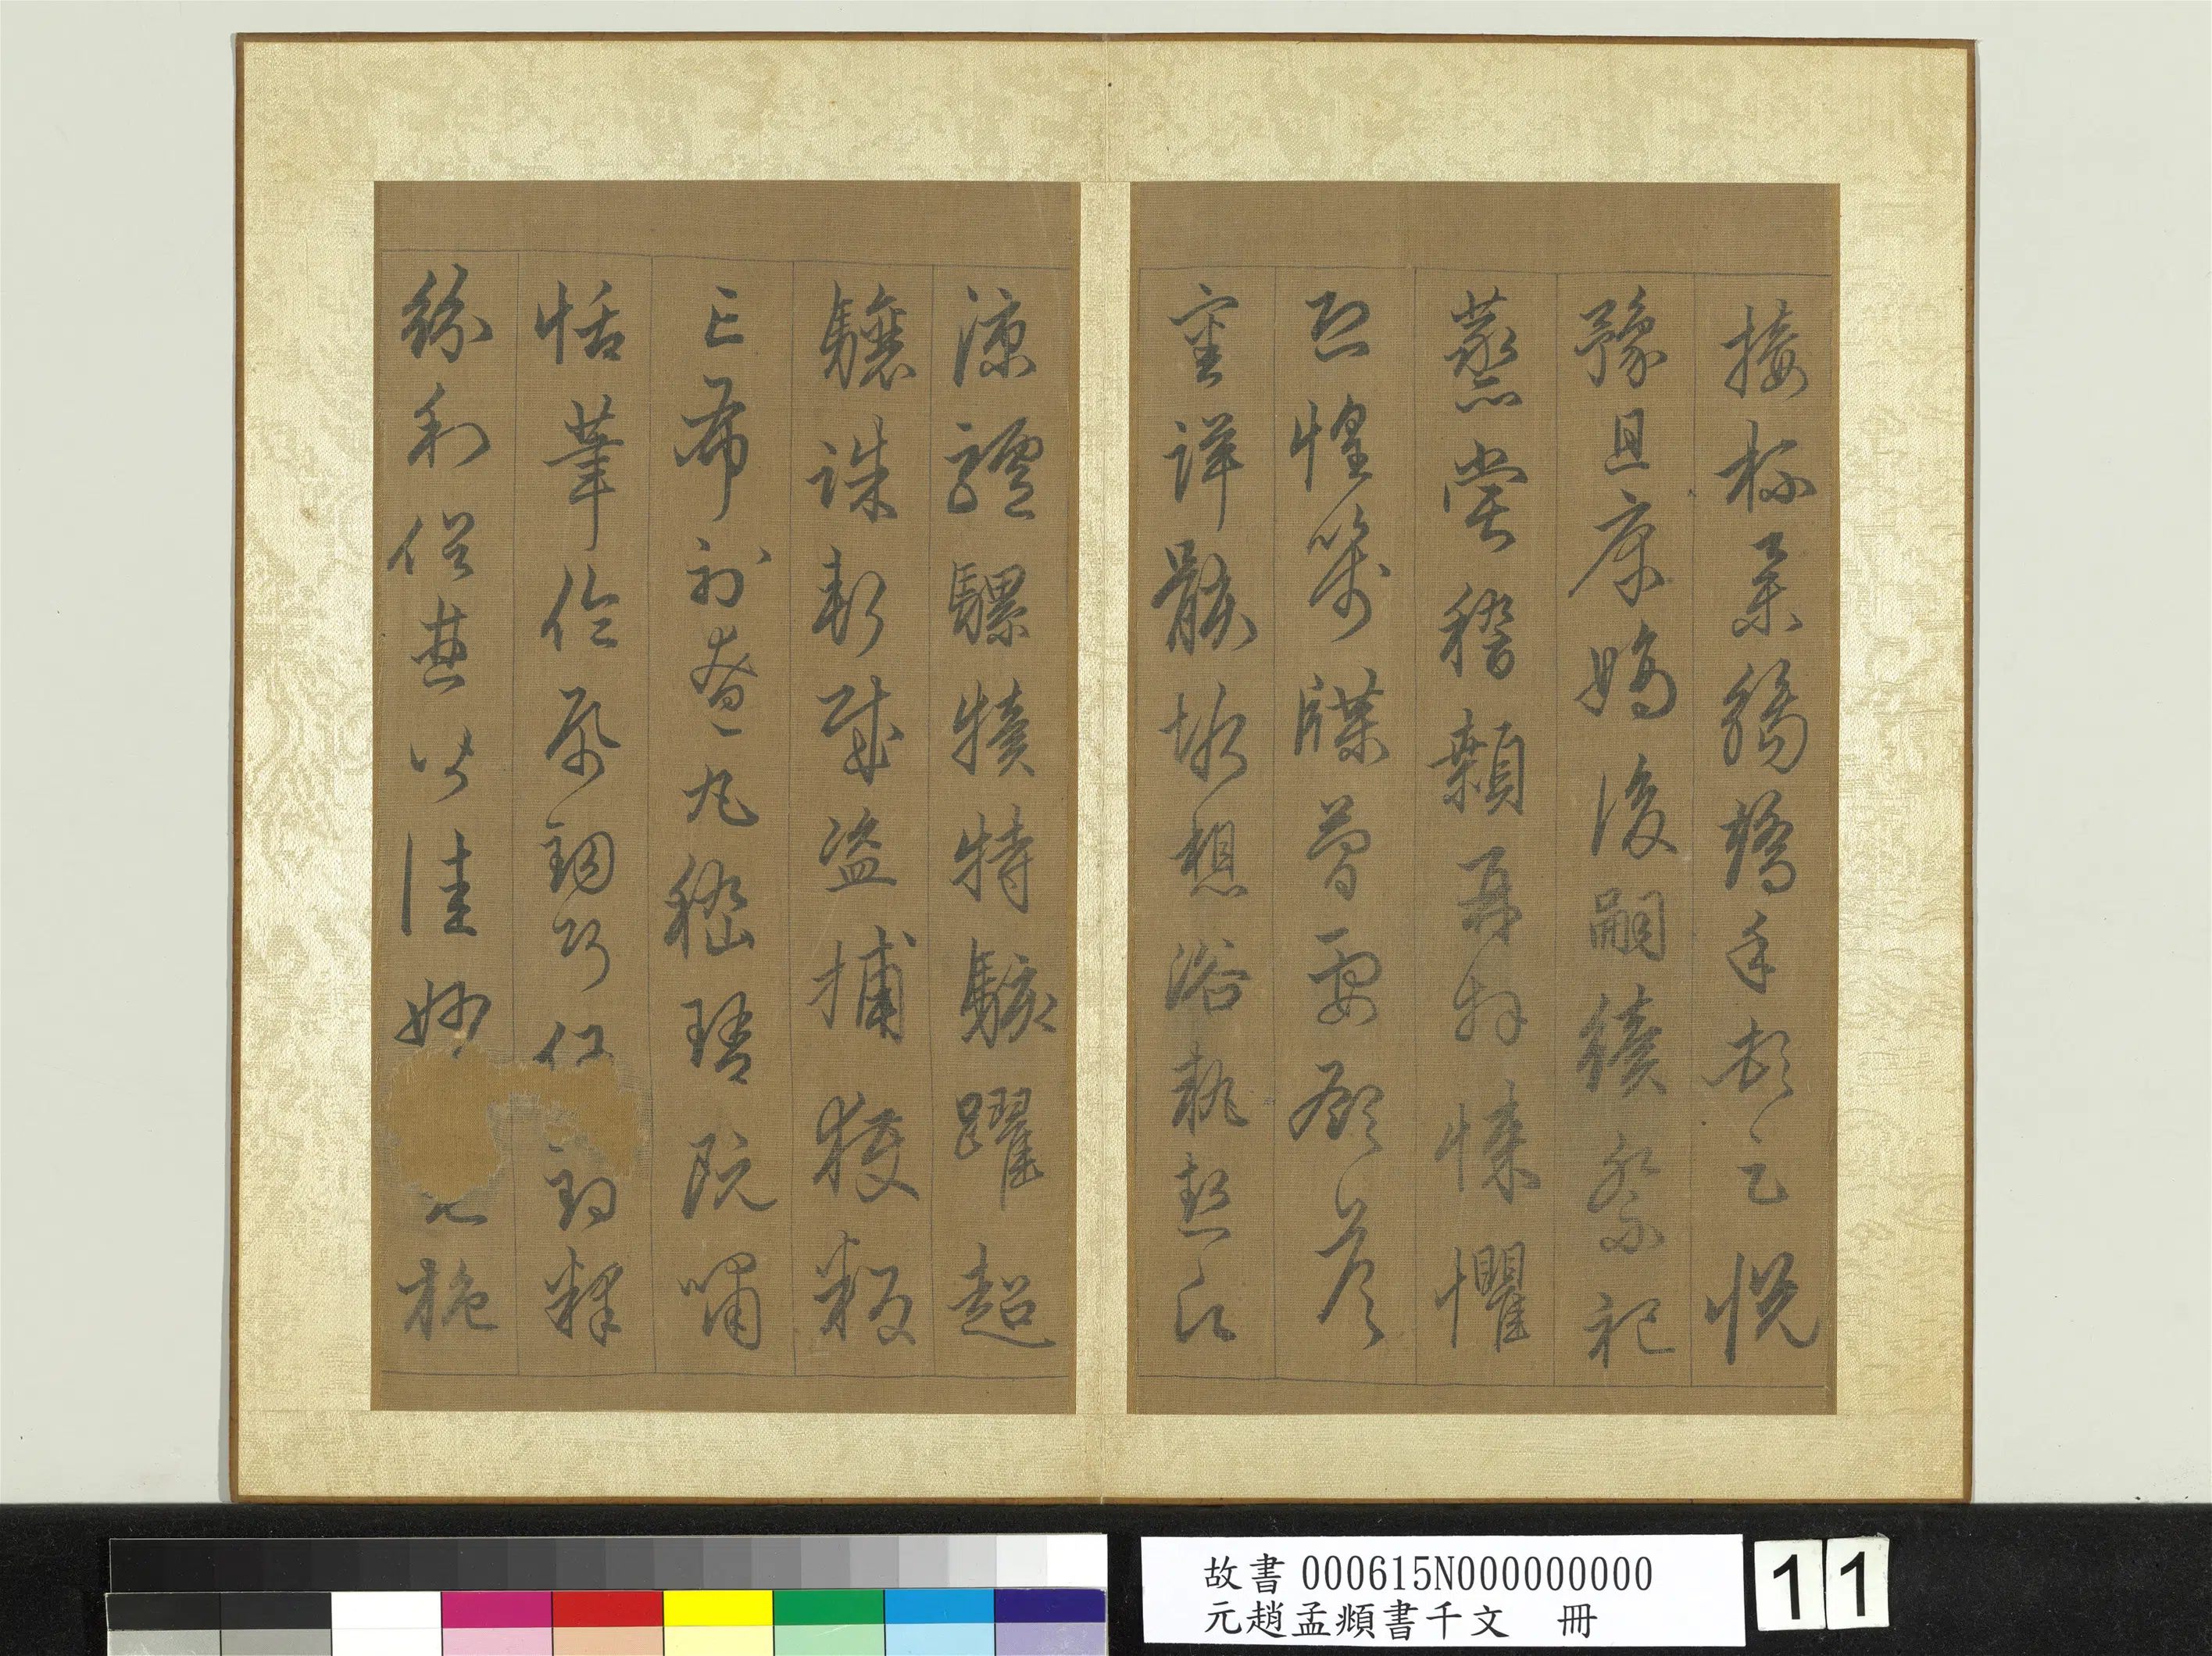 接杯舉觴矯手頓足悅
豫且康嫡後嗣續祭祀
蒸嘗稽顙再拜悚懼
恐惶箋牒簡要顧答
審詳骸垢想浴執熱願
涼驢騾犢特駭躍超
驤誅斬賊盜捕獲叛
亡布射遼丸嵇琴阮嘯
恬筆倫紙鈞巧任釣釋
紛利俗並皆佳妙毛施
故書 000615N000000000
元趙孟頫書千文 冊
11